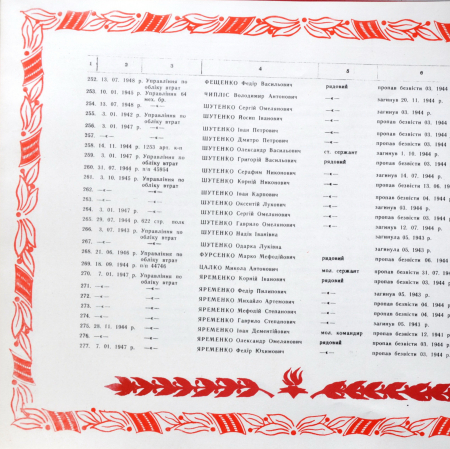 1 2 3 4 5 6
252. 13. 07. 1948 р. Управління по обліку втрат ФЕЩЕНКО Федір Васильович рядовий пропав безвісти 03. 1944
253. 10. 01. 1945 р. Управління 64 мех. бр. ЧИПЛІС Володимир Антонович —«— загинув 20. 11. 1944 р.
254. 13. 07. 1948 р. —«— ШУТЕНКО Сергій Омелянович —«— загинув 03. 1944 р.
255. 3. 01. 1942 р. Управління по обліку втрат ШУТЕНКО Йосип Іванович —«— пропав безвісти 03. 1944
256. 3. 01. 1947 р. —«— ШУТЕНКО Іван Петрович —«— пропав безвісти 03. 1944
257. —«— —«— ШУТЕНКО Дмитро Петрович —«— пропав безвісти 03. 1944
258. 16. 11. 1944 р. 1253 арт. п/п ШУТЕНКО Олександр Васильович ст. сержант загинув 1. 10. 1944 р.
259. 3. 01. 1947 р. Управління по обліку втрат ШУТЕНКО Григорій Васильович рядовий пропав безвісти 03. 1944
260. 31. 07. 1948 р. п/п 45804 ШУТЕНКО Серафим Никонович —«— загинув 14. 07. 1944 р.
261. 3. 10. 1945 р. Управління по обліку втрат ШУТЕНКО Корній Никонович —«— пропав безвісти 13. 06.
262. —«— —«— ШУТЕНКО Іван Карпович —«— пропав безвісти 04. 1944
263. —«— —«— ШУТЕНКО Оксентій Лукович —«— загинув 03. 1944 р.
264. 3. 01. 1947 р. —«— ШУТЕНКО Сергій Омелянович —«— пропав безвісти 03. 1944
265. 29. 07. 1944 р. 622 стр. полк ШУТЕНКО Гаврило Омелянович —«— загинув 12. 07. 1944 р.
266. 3. 07. 1942 р. Управління по обліку втрат ШУТЕНКО Надія Іванівна —«— загинула 05. 1943 р.
267. —«— —«— ШУТЕНКО Одарка Луківна —«— загинула 05. 1943 р.
268. 21. 06. 1946 р. Управління по обліку втрат ФУРСЕНКО Марко Мефодійович рядовий пропав безвісти 06. 1944
269. 16. 09. 1944 р. п/п 44746 ЦАЛКО Микола Антонович мол. сержант пропав безвісти 31. 07.
270. 7. 01. 1947 р. Управління по обліку втрат ЯРЕМЕНКО Корній Іванович рядовий пропав безвісти 03. 1944
271. —«— —«— ЯРЕМЕНКО Федір Пилипович —«— загинув 05. 1943 р.
272. —«— —«— ЯРЕМЕНКО Михайло Артемович —«— пропав безвісти 06.
273. —«— —«— ЯРЕМЕНКО Мефодій Степанович —«— пропав безвісти 04. 1944
274. —«— —«— ЯРЕМЕНКО Гаврило Степанович —«— загинув 05. 1941 р.
275. 28. 11. 1966 р. —«— ЯРЕМЕНКО Іван Дементійович мол. командир пропав безвісти 12. 1941
276. —«— —«— ЯРЕМЕНКО Олександр Омелянович рядовий пропав безвісти 03. 1944
277. 7. 01. 1947 р. —«— ЯРЕМЕНКО Федір Юхимович —«— пропав безвісти 03. 1944